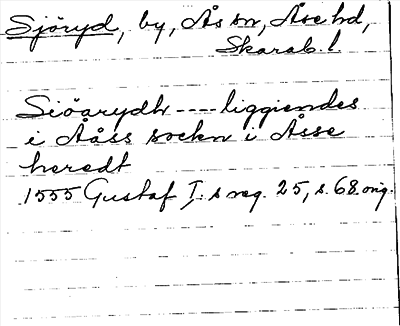 Sjöryd, by, Ås sn, Åse hd,
Skarab. l.
Siöarydh ---- liggiendes
i Aåss sockn i Åsse
heredt
1555 Gustaf I:s reg. 25, s. 68 orig.